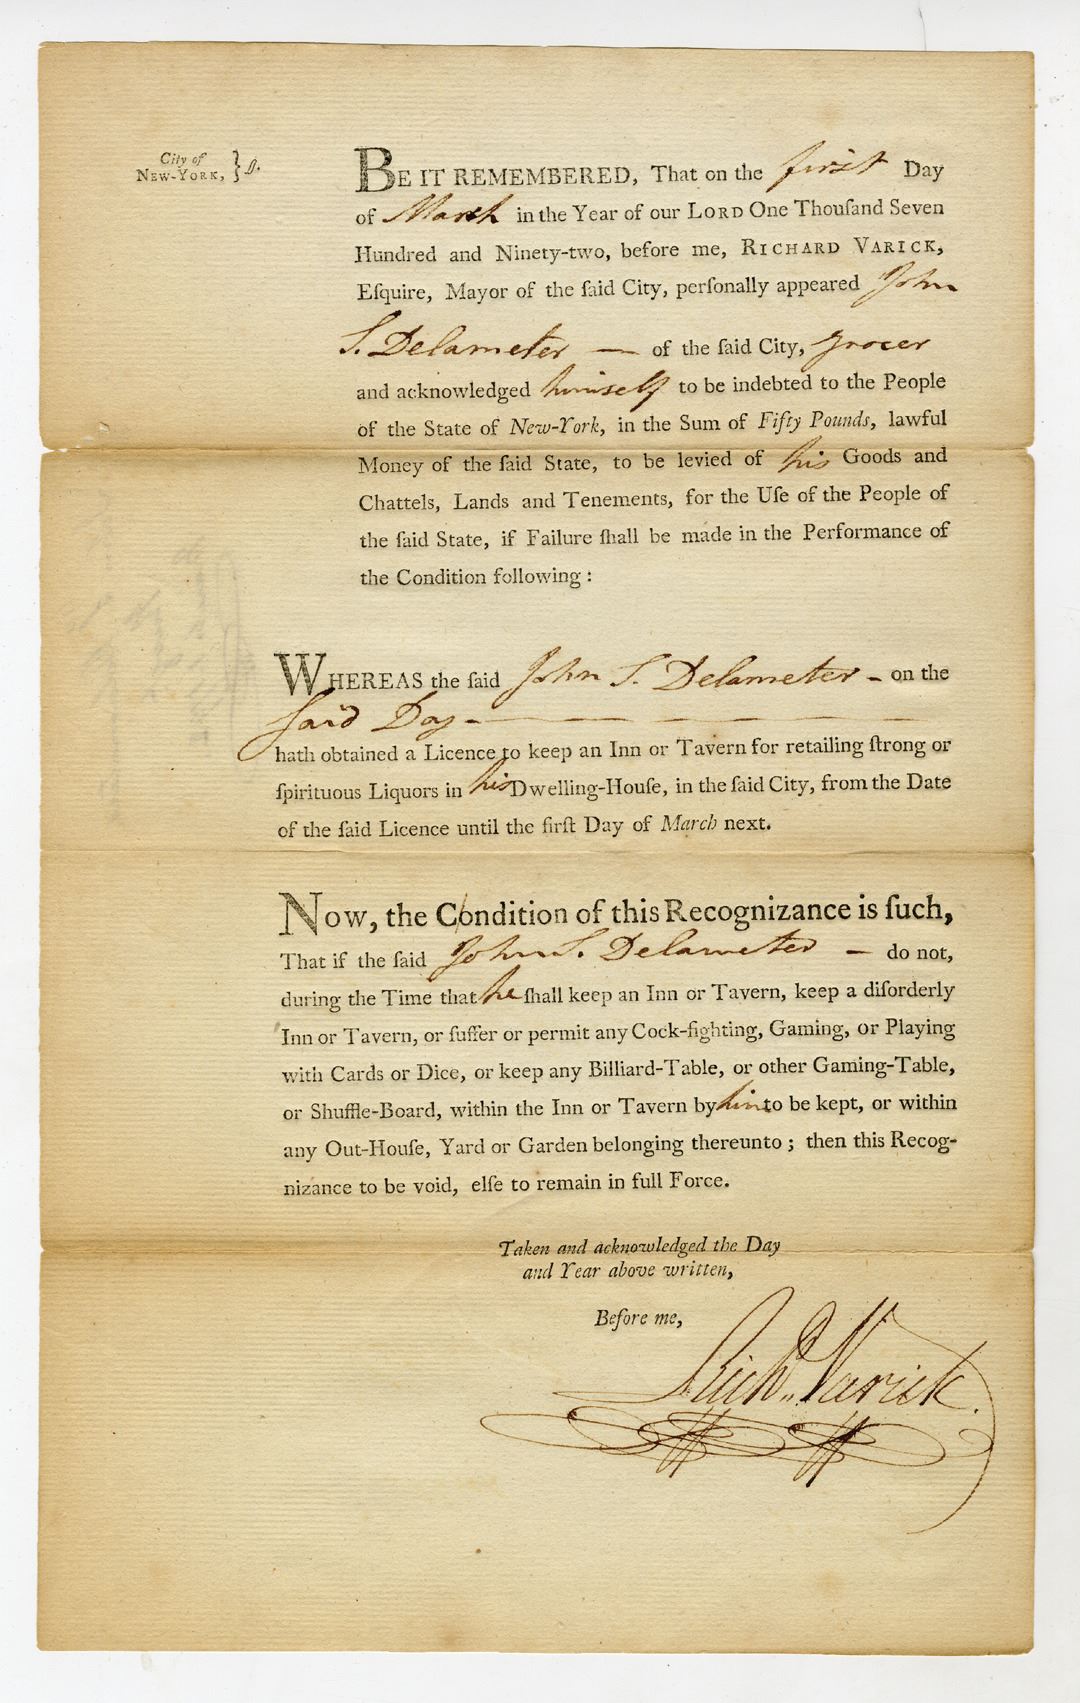 City of
NEW-YORK, } ſſ.
BE IT REMEMBERED, That on the first Day
of March in the Year of our LORD One Thouſand Seven
Hundred and Ninety-two, before me, RICHARD VARICK,
Eſquire, Mayor of the ſaid City, perſonally appeared John
S. Delameter — of the ſaid City, grocer
and acknowledged himself to be indebted to the People
of the State of New-York, in the Sum of Fifty Pounds, lawful
Money of the ſaid State, to be levied of his Goods and
Chattels, Lands and Tenements, for the Uſe of the People of
the ſaid State, if Failure ſhall be made in the Performance of
the Condition following:
WHEREAS the ſaid John S. Delameter - on the
ſaid Day - — — — — —
hath obtained a Licence to keep an Inn or Tavern for retailing ſtrong or
ſpirituous Liquors in his Dwelling-Houſe, in the ſaid City, from the Date
of the ſaid Licence until the firſt Day of March next.
NOW, the Condition of this Recognizance is ſuch,
That if the ſaid John S. Delameter — do not,
during the Time that he ſhall keep an Inn or Tavern, keep a diſorderly
Inn or Tavern, or ſuffer or permit any Cock-fighting, Gaming, or Playing
with Cards or Dice, or keep any Billiard-Table, or other Gaming-Table,
or Shuffle-Board, within the Inn or Tavern by him to be kept, or within
any Out-Houſe, Yard or Garden belonging thereunto; then this Recog-
nizance to be void, elſe to remain in full Force.
Taken and acknowledged the Day
and Year above written,
Before me,
Richd. Varick.